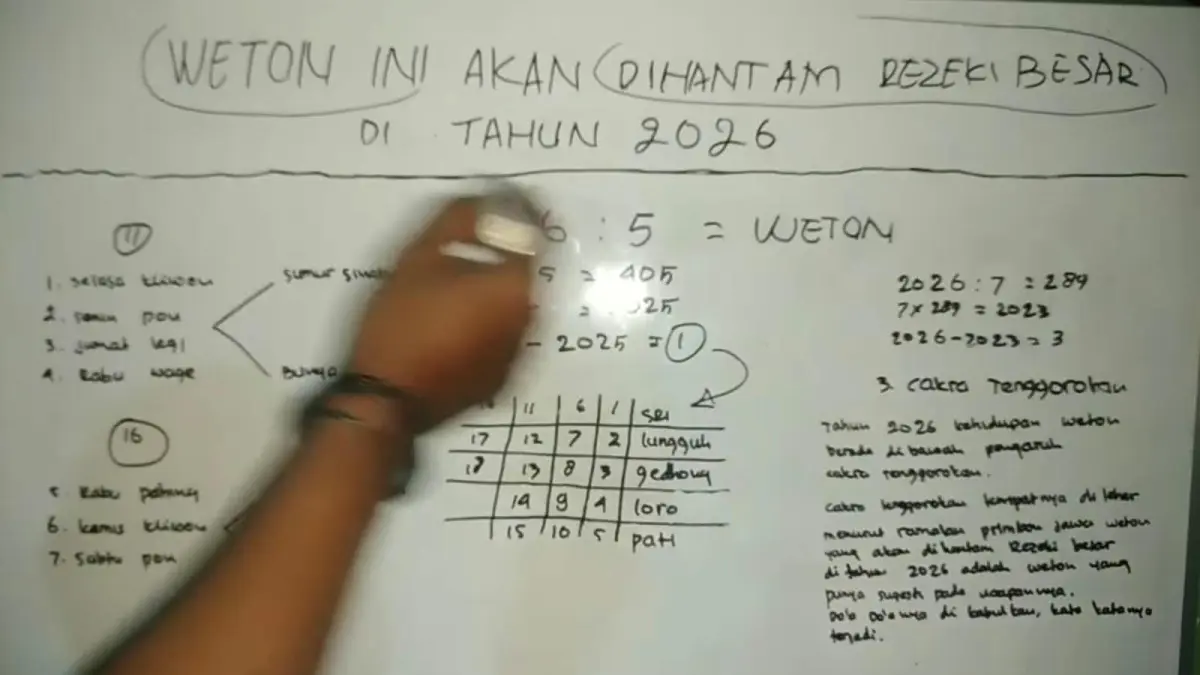 WETON INI AKAN DIHANTAM REZEKI BESAR
DI TAHUN 2026
11
1. Selasa kliwon
2. Senin pon
3. Jumat legi
4. Rabu wage
sumur
16
5. Rabu pahing
6. Kamis kliwon
7. Sabtu pon
6 : 5 = WETON
5 = 405
= 2025
- 2025 = 1
11 6 1 sri
17 12 7 2 lungguh
18 13 8 3 gedhong
14 9 4 loro
15 10 5 pati
2026 : 7 = 289
7 x 289 = 2023
2026 - 2023 = 3
3. cakra Tenggorokan
Tahun 2026 kehidupan weton
berada di bawah pengaruh
cakra tenggorokan.
cakra tenggorokan tempatnya di leher
menurut ramalan primbon jawa weton
yang akan dihantam Rezeki besar
di tahun 2026 adalah weton yang
punya pada ucapannya.
Do'a Do'anya di kabulkan, kata katanya
terjadi.